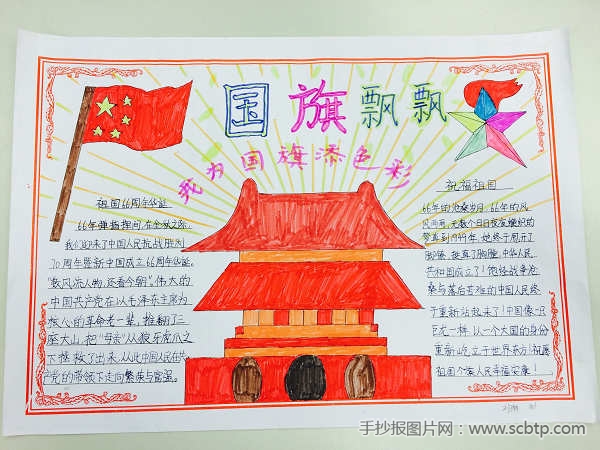 国旗飘飘
我为国旗添色彩
祖国66周年华诞
66年弹指一挥间,在金秋之际,
我们迎来了中国人民抗战胜利
70周年暨新中国成立66周年华诞。
"数风流人物,还看今朝"。伟大的
中国共产党在以毛泽东主席为
核心的革命先一辈,推翻了三
座大山,把"母亲"从狼牙虎爪之
下拯救了出来,从此中国人民在共
产党的带领下走向繁荣与富强。
祝福祖国
66年的沧桑岁月,66年的风
风雨雨,无数个日日夜夜编织的
梦。直到1949年,她终于甩开了
脚镣,挺直了胸膛,中华人民
共和国成立了!饱经战争沧
桑与落后苦难的中国人民终
于重新站起来了!中国像一只
巨龙一样,以一个大国的身份
重新屹立于世界东方!祝愿
祖国个家人民幸福安康!
手抄报图片网:www.scbtp.com